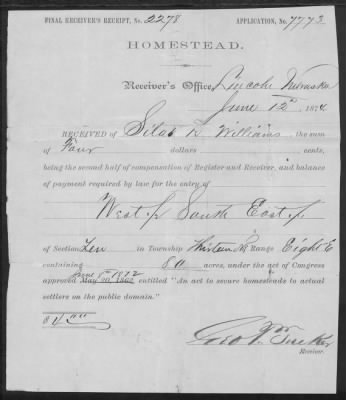 FINAL RECEIVER'S RECEIPT, No. 2278 APPLICATION, No. 7773
HOMESTEAD.
Receiver's Office, Lincoln Nebraska
June 12th 1874
RECEIVED OF Silas Williams the sum
of Four dollars cents,
being the second half of compensation of Register and Receiver, and balance
of payment required by law for the entry of
West ½ South East ¼
of Section Ten in Township Thirteen N Range Eight E
containing 80 acres, under the act of Congress
June 8th 1872
approved May 20, 1862 entitled "An act to secure homesteads to actual
settlers on the public domain."
$ 4 00
Geo. P. Tucker
Receiver.